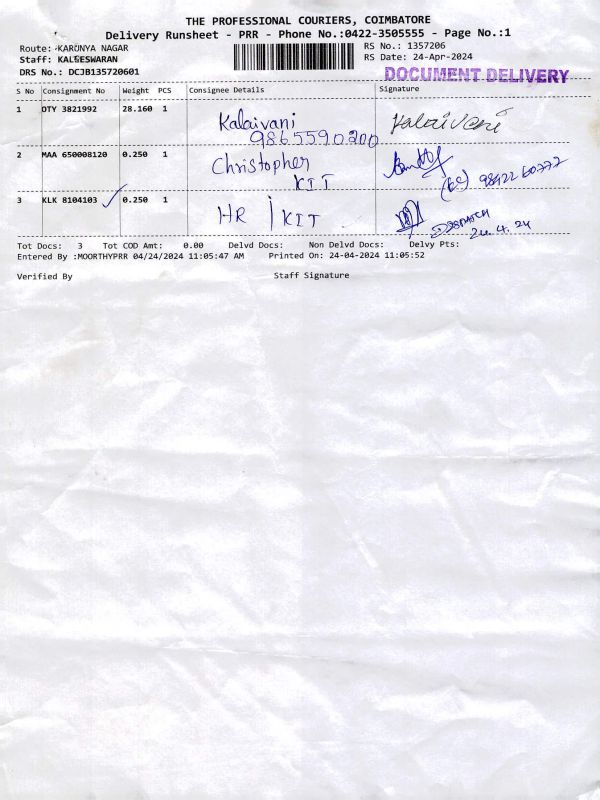 THE PROFESSIONAL COURIERS, COIMBATORE
Delivery Runsheet - PRR - Phone No.:0422-3505555 - Page No.:1
Route: KARUNYA NAGAR
RS No.: 1357206
Staff: KALEESWARAN
RS Date: 24-Apr-2024
DRS No.: DCJB135720601
DOCUMENT DELIVERY
S No Consignment No Weight PCS Consignee Details Signature
1 DTY 3821992 28.160 1 Kalaivani Kalaivani
9865590200
2 MAA 650008120 0.250 1 Christopher
KIT
3 KLK 8104103 0.250 1 HR | KIT
DISPATCH
24.4.24
Tot Docs: 3 Tot COD Amt: 0.00 Delvd Docs: Non Delvd Docs: Delvy Pts:
Entered By :MOORTHYPRR 04/24/2024 11:05:47 AM Printed On: 24-04-2024 11:05:52
Verified By Staff Signature